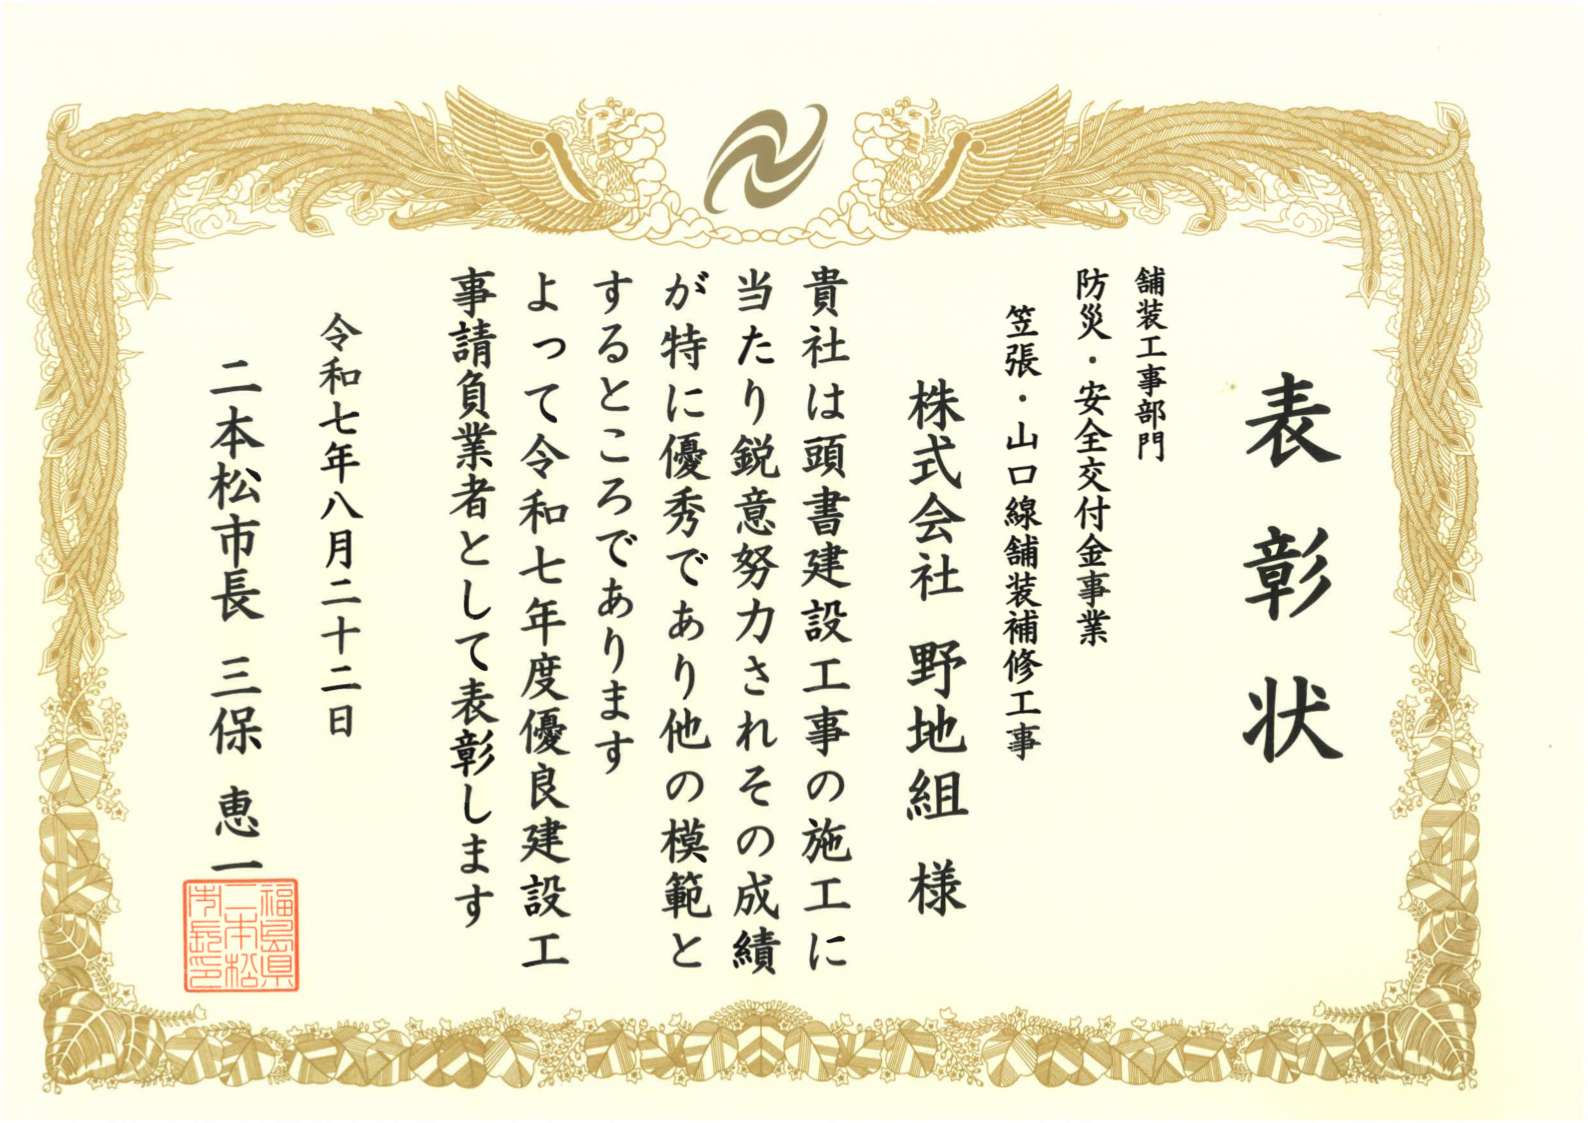 表彰状
舗装工事部門
防災・安全交付金事業
笠張・山口線舗装補修工事
株式会社 野地組 様
貴社は頭書建設工事の施工に
当たり鋭意努力されその成績
が特に優秀であり他の模範と
するところであります
よって令和七年度優良建設工
事請負業者として表彰します
令和七年八月二十二日
二本松市長 三保 恵一
福島県
二本松
市長印